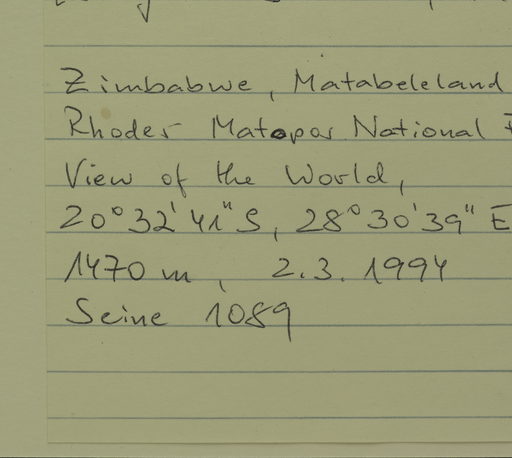 Zimbabwe, Matabeleland
Rhodes Matopos National
View of the World,
20°32'41"S, 28°30'39"E
1470 m, 2.3.1994
Seine 1089